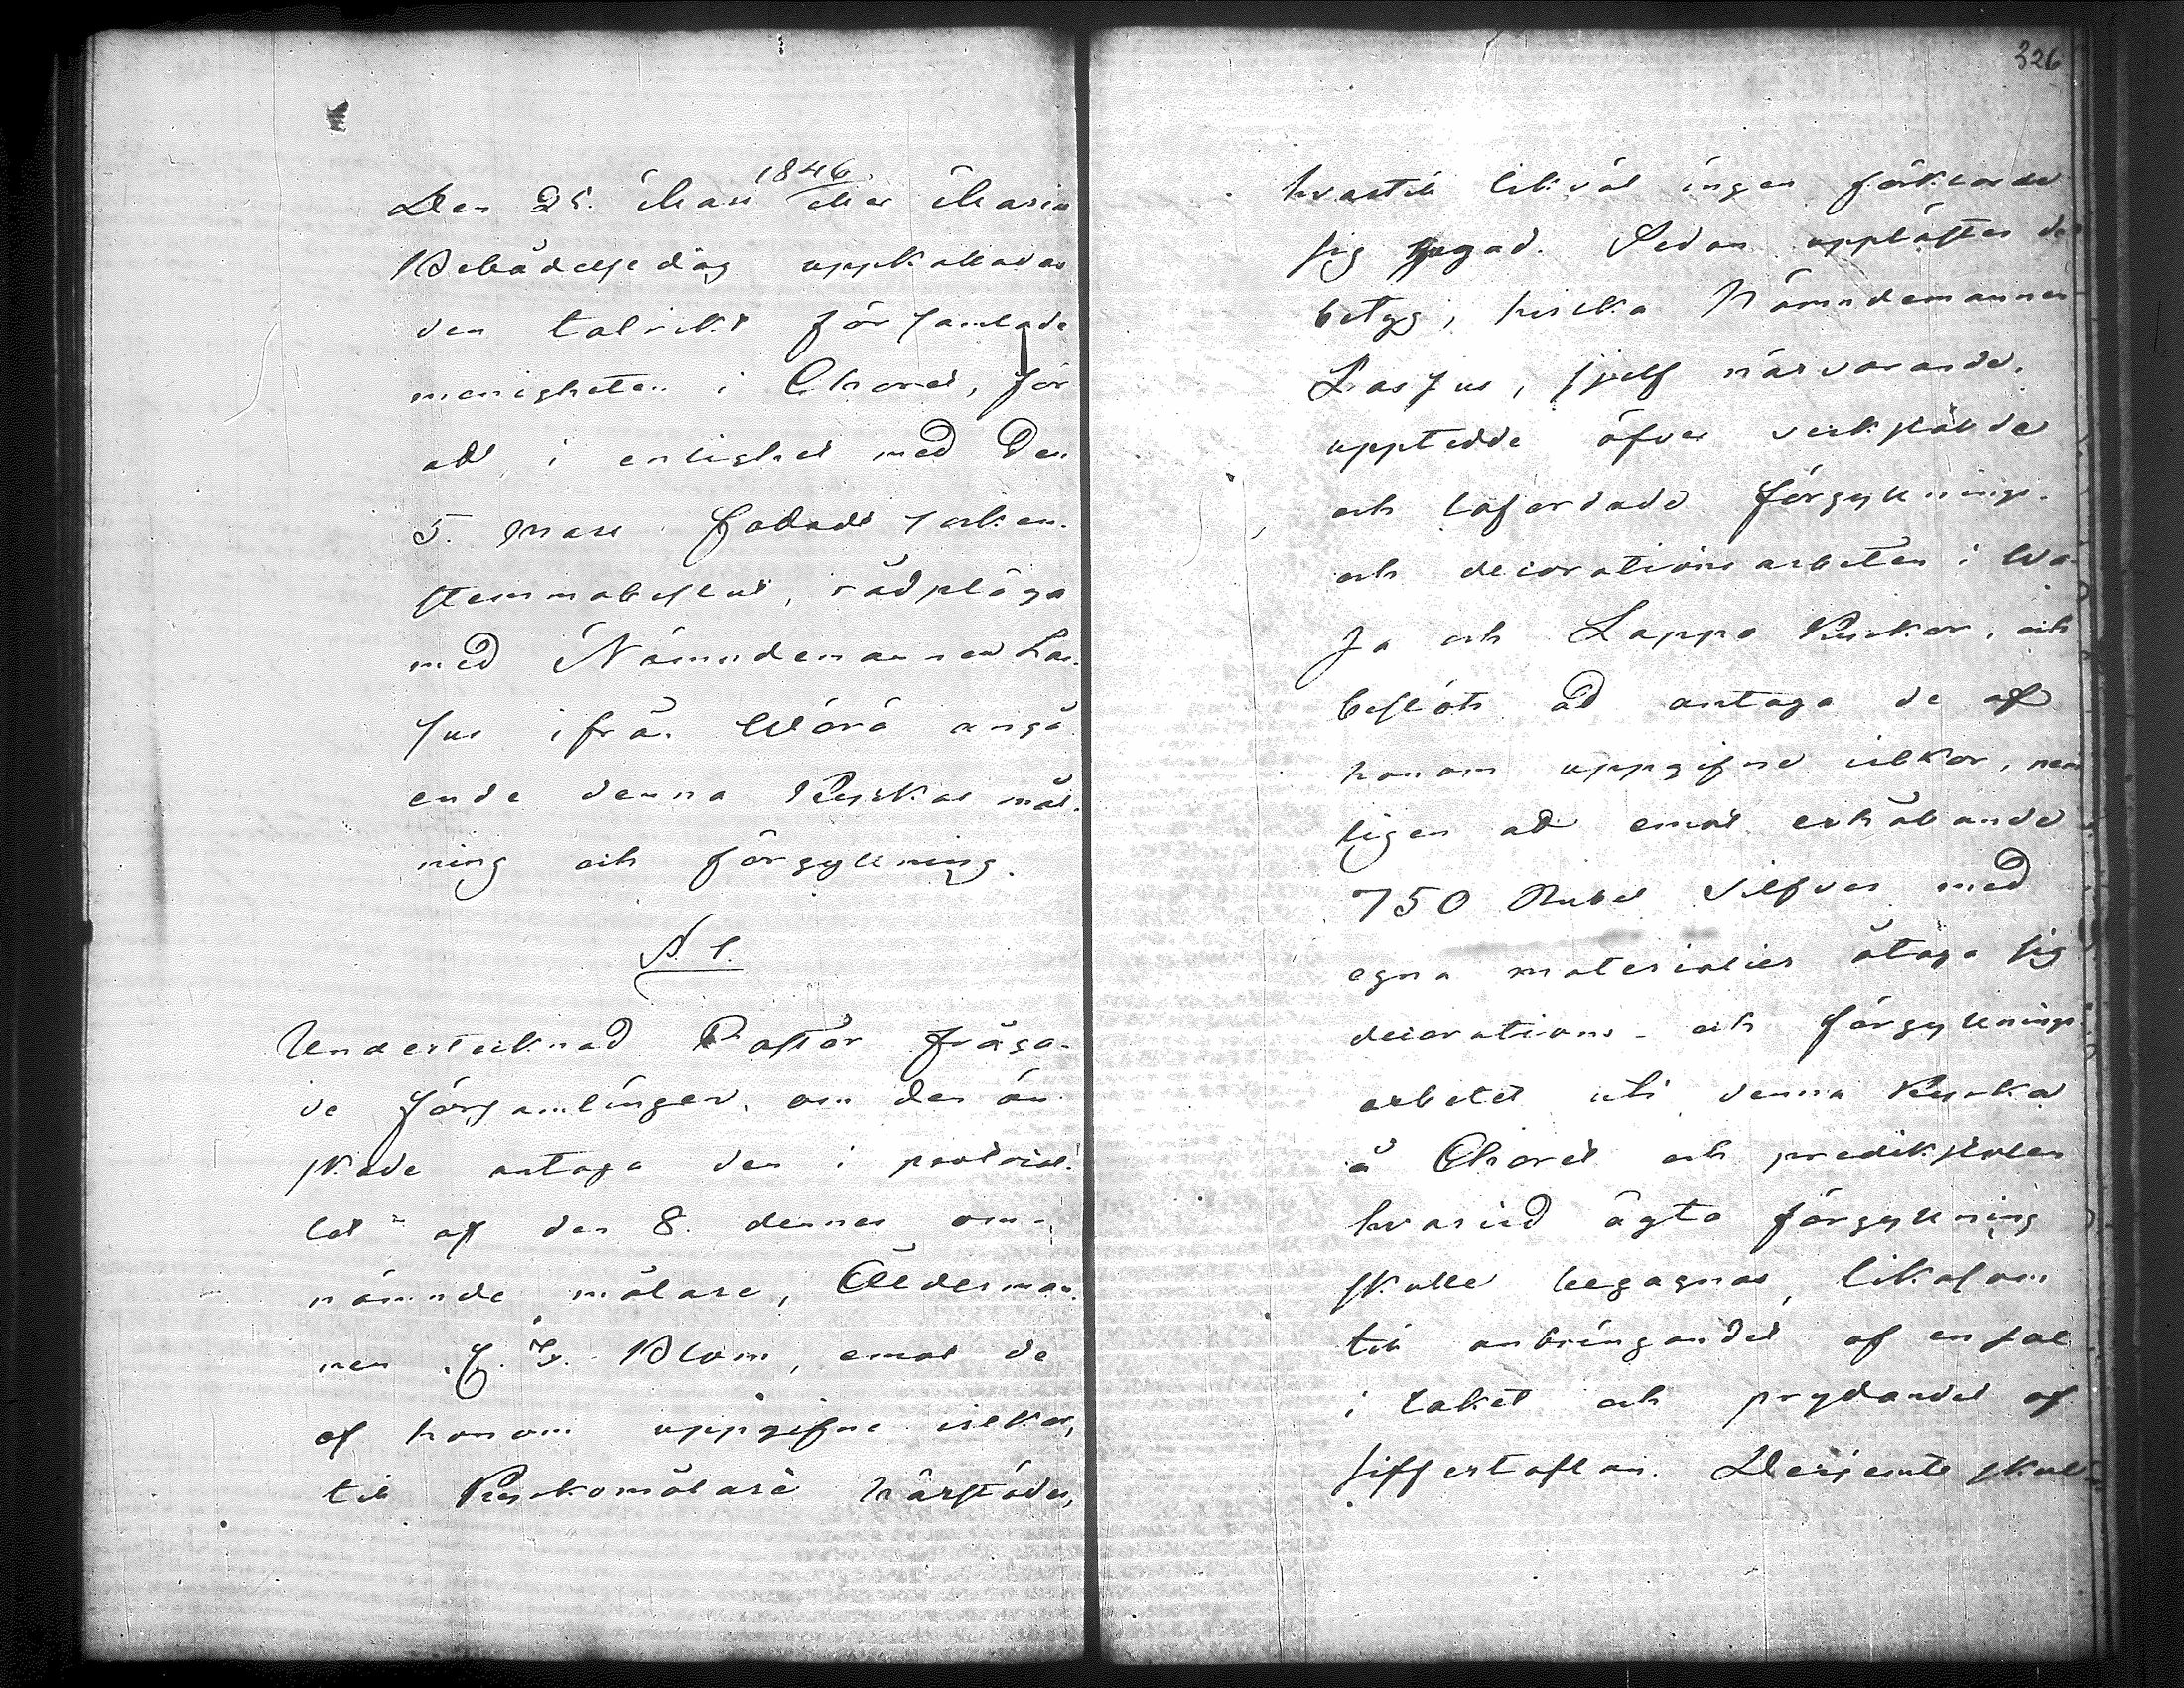 1846
Den 25. Mars eller Mariæ
Bebådelsedag uppkallades
den talrikt församlade
menigheten i Choret, för
att, i enlighet med den
5. Mars fattade socken-
stemmobeslut, rådpläga
med Nämndemannen Las-
sus ifrån Wörå angå-
ende denna Kyrkas mål-
ning och förgyllning.
§. 1.
Undertecknad Pastor fråga-
de församlingen, om den ön-
skade antaga den i protocol-
let af den 8. dennes om-
nämnde målare, Åldermannen
nen Blom, emot de
af honom uppgifne vilkor,
till Kyrkomålare härstädes,
326
hvartill likväl ingen förklarade
sig hugad. Sedan upplästes de
betyg, hvilka Nämndemannen
Lassus, sjelf närvarande,
upptedde öfver verkstälde
och lofordade förgyllnings-
och decorationsarbeten i Wa-
sa och Lappo Kyrkor, och
beslöts att antaga de af
honom uppgifne vilkor, nem-
ligen att emot erhållande
750 Rubel Silfver med
egna materialier åtaga sig
decorations- och förgyllnings-
arbetet uti denna Kyrka
å Choret och predikstolen
hvarvid ägta förgyllning
skulle begagnas, likasom
till anbringandet af en sol
i taket och prydandet af
siffertaflan. Derjemte skulle